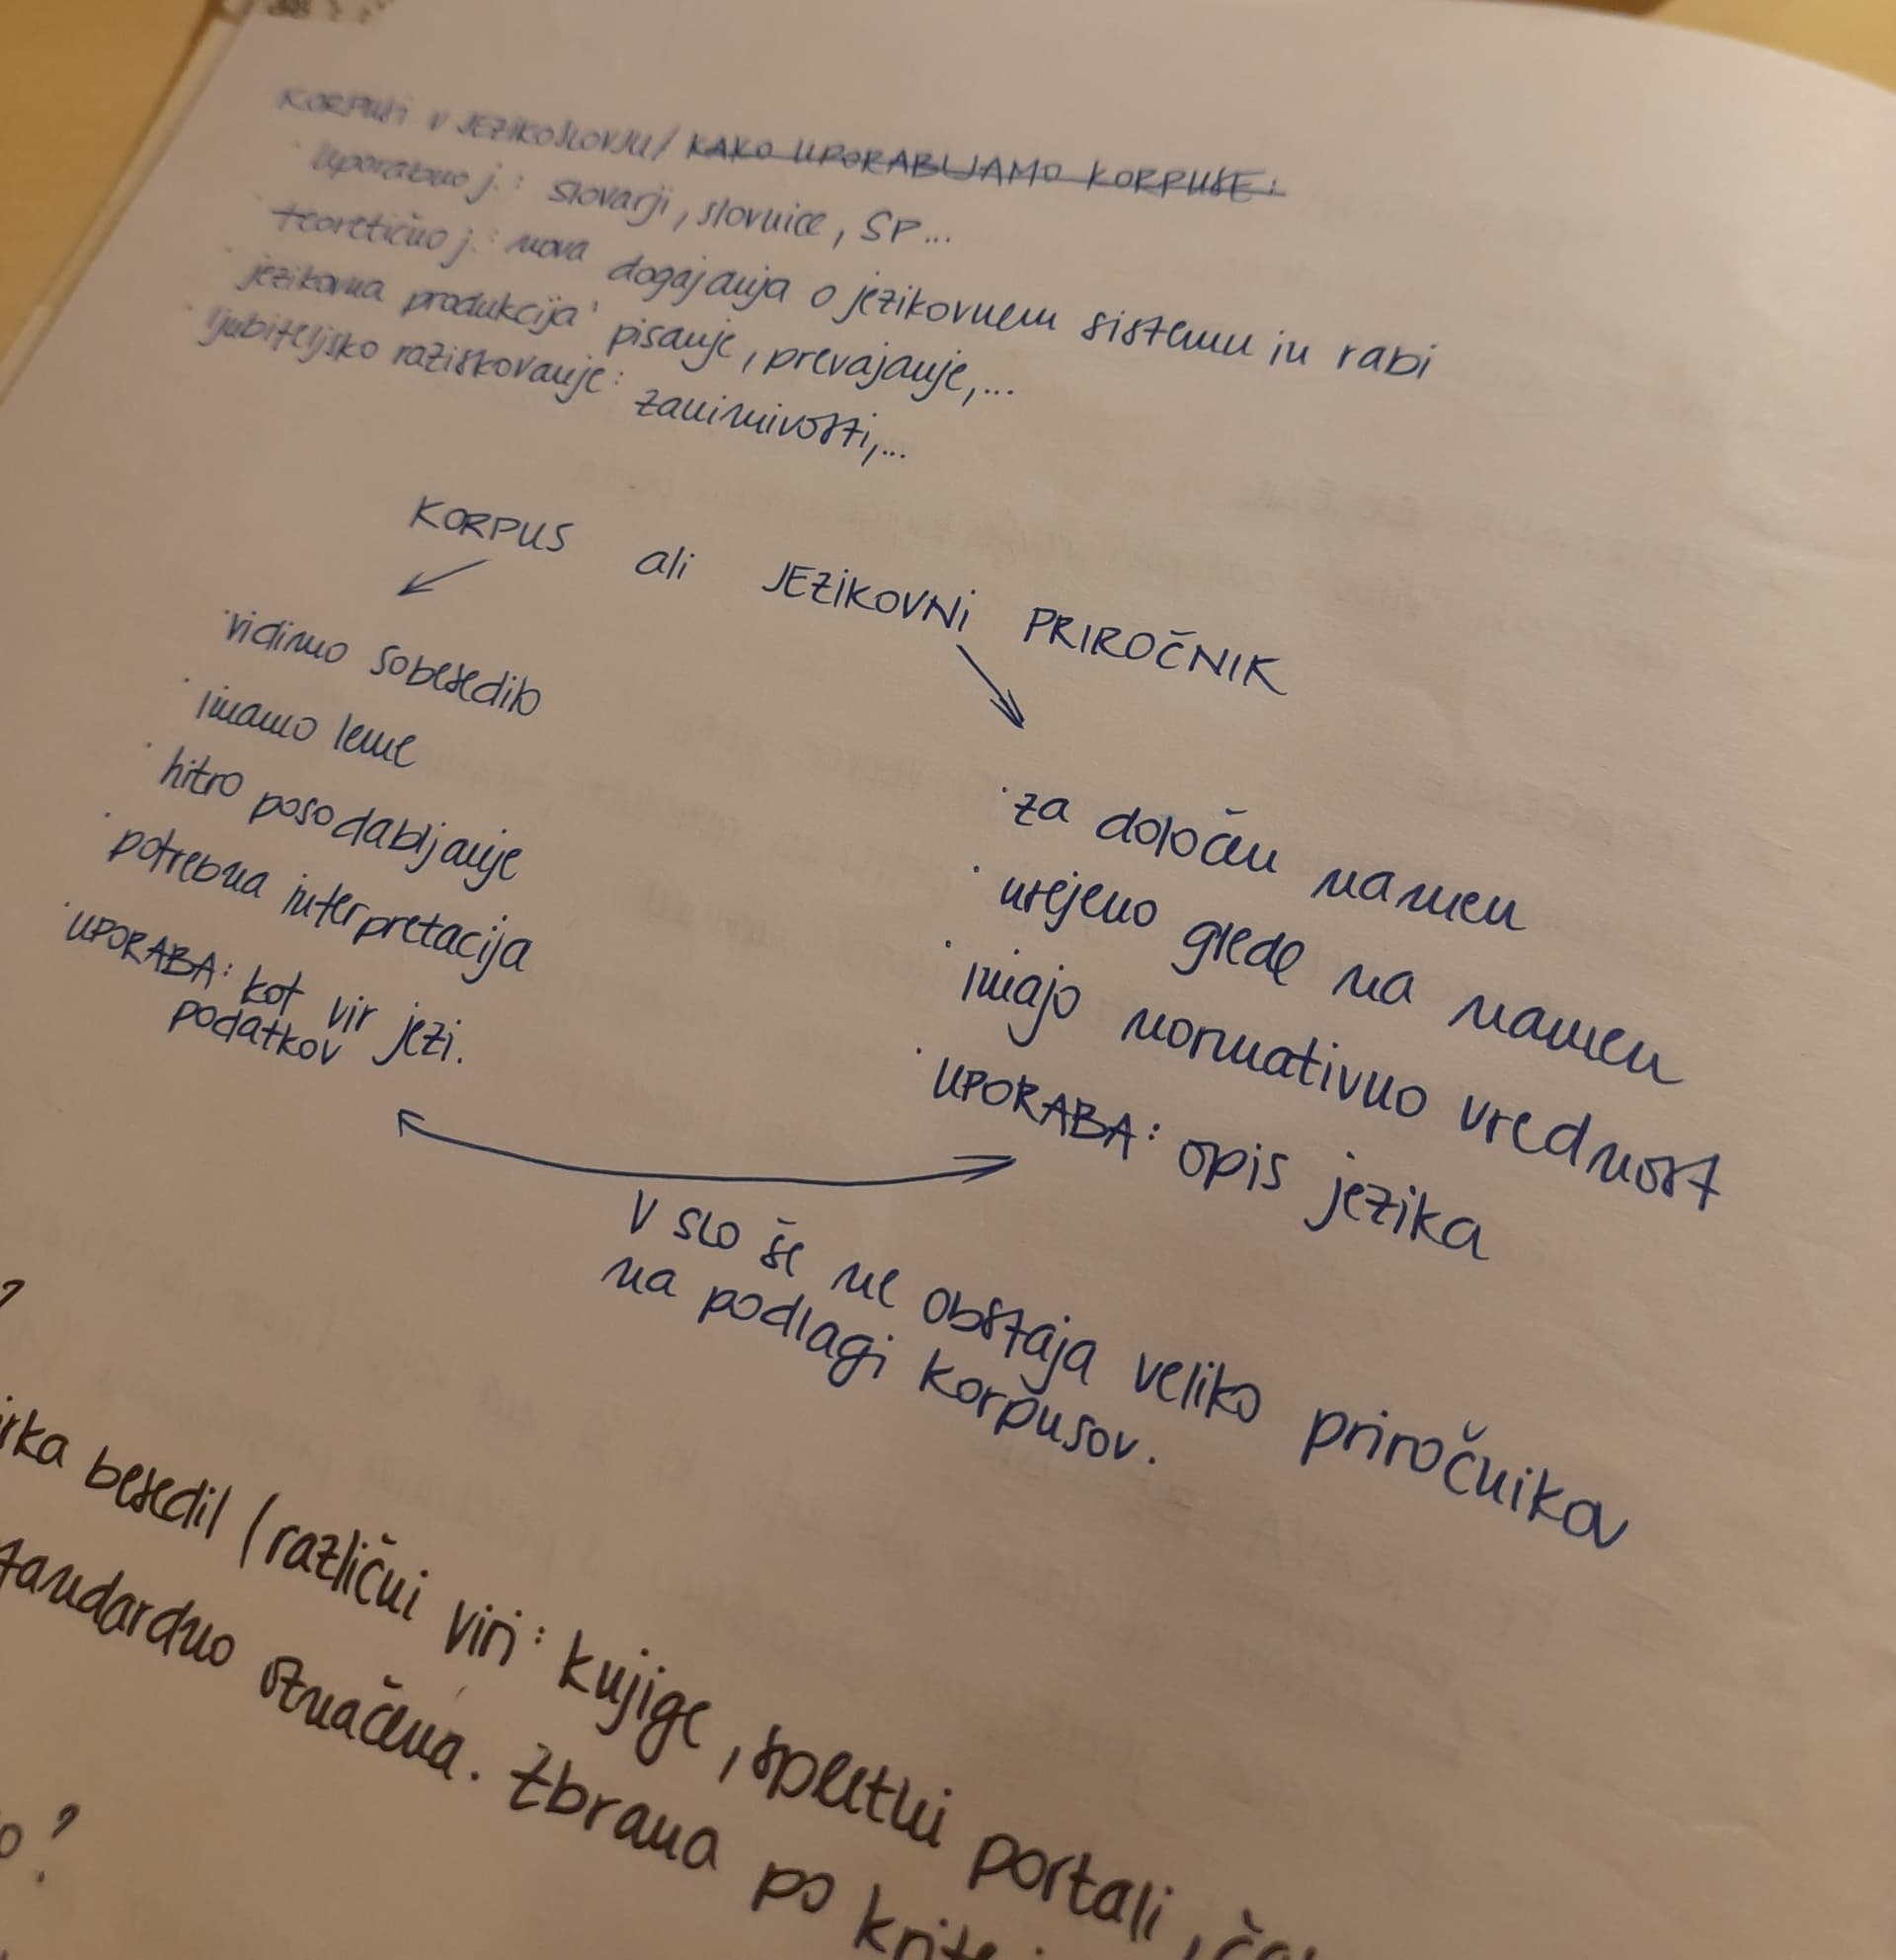 KORPUSI V JEZIKOSLOVJU / KAKO UPORABLJAMO KORPUSE:
· uporabno j.: slovarji, slovnice, SP...
· teoretično j.: nova dogajanja o jezikovnem sistemu in rabi
· jezikovna produkcija: pisanje, prevajanje,...
· ljubiteljsko raziskovanje: zanimivosti,...
KORPUS ali JEZIKOVNI PRIROČNIK
· vidimo sobesedilo
· imamo leme
· hitro posodabljanje
· potrebna interpretacija
· UPORABA: kot vir jezi.
podatkov
· za določen namen
· urejeno glede na namen
· imajo normativno vrednost
· UPORABA: opis jezika
V slo še ne obstaja veliko priročnikov
na podlagi korpusov.
?
besedil (različni viri: knjige, spletni portali,
označena. Zbrana po
?